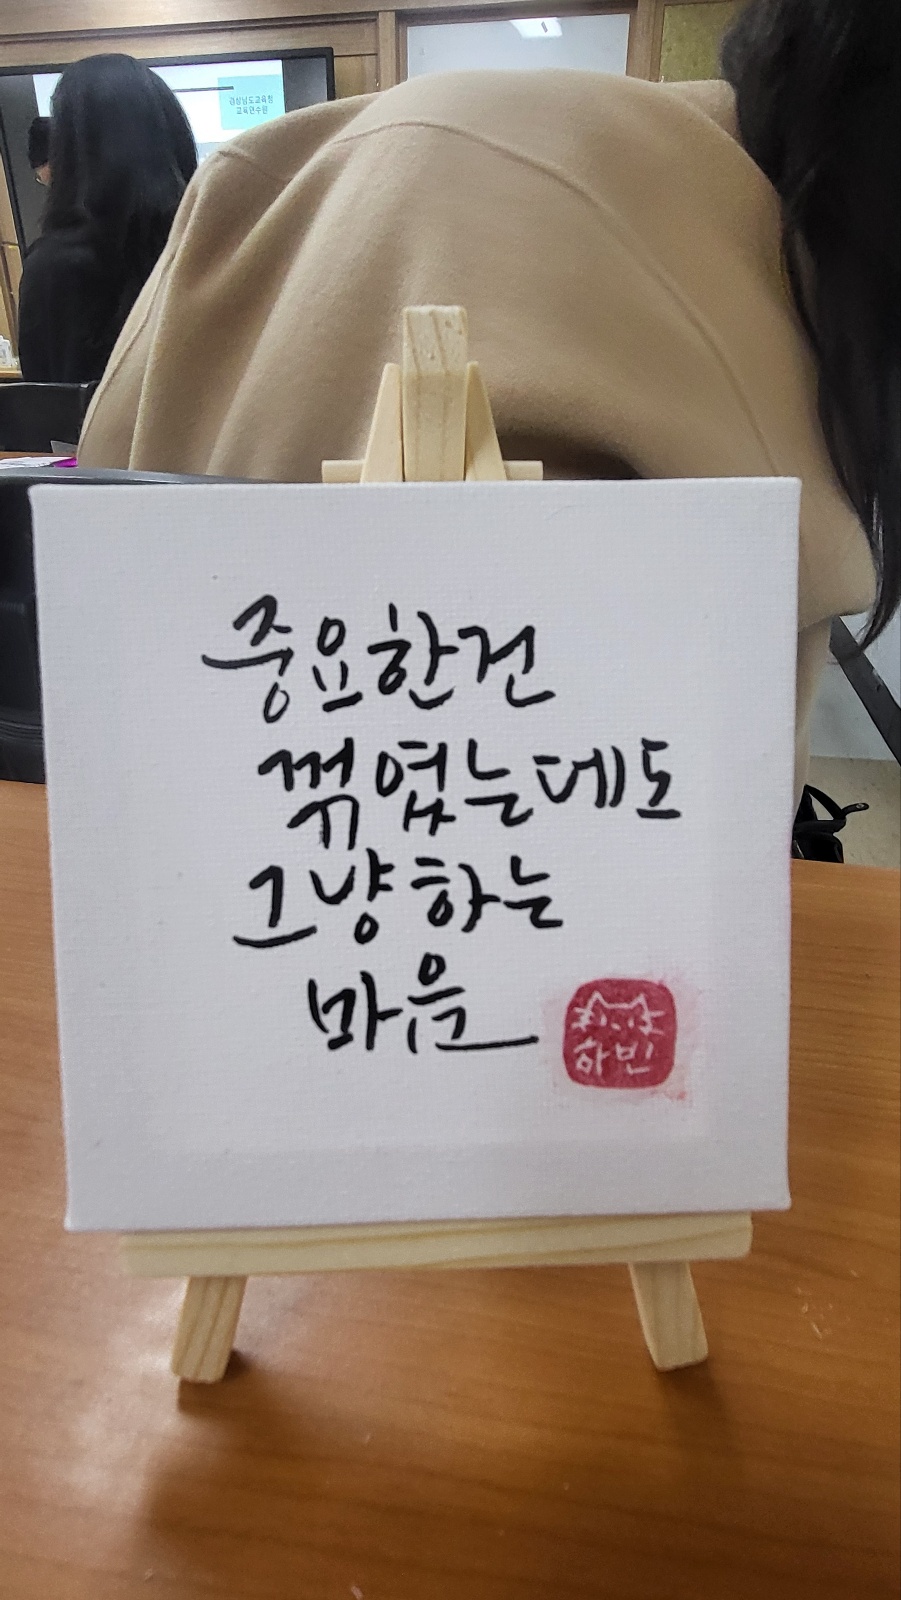 경상남도교육청
교육연수원
중요한건
꺾였는데도
그냥 하는
마음
하빈